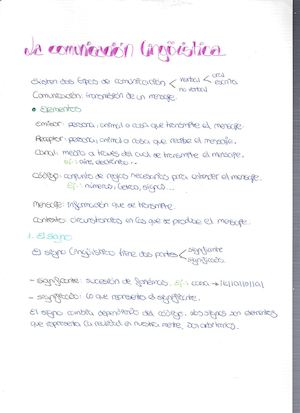 La comunicación lingüística
Existen dos tipos de comunicación < verbal < oral
escrita
no verbal
Comunicación: transmisión de un mensaje.
• Elementos
Emisor: persona, animal o cosa que transmite el mensaje.
Receptor: persona, animal o cosa que recibe el mensaje.
Canal: medio a través del cual se transmite el mensaje.
Ej: aire, electrónico...
Código: conjunto de reglas necesarias para entender el mensaje.
Ej: números, letras, signos...
Mensaje: información que se transmite.
Contexto: circunstancias en las que se produce el mensaje.
1. El signo
El signo lingüístico tiene dos partes < significante
significado
- significante: sucesión de fonemas. Ej: casa →
- significado: lo que representa el significante.
El signo cambia dependiendo del código. Los signos son elementos
que representa la realidad en nuestra mente. Son arbitrarios.